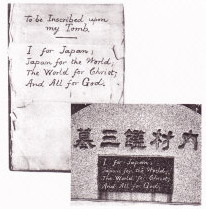 To be Inscribed upon
my Tomb.
I for Japan;
Japan for the World;
The World for Christ;
And All for God.
墓三鑑村内
I for Japan;
Japan for the World;
The World for Christ;
And All for God.